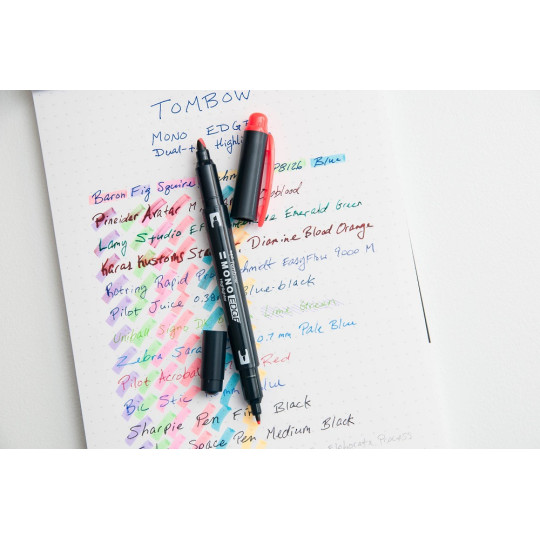 TOMBOW
MONO EDGE
Dual-t Highli
Baron Fig Squire PB126 Blue
Pineider Avatar M oxblood
Lamy Studio EF Emerald Green
Karas Kustoms Diamine Blood Orange
Rotring Rapid P Schmidt EasyFlow 9000 M
Pilot Juice 0.38 Blue-black
Uniball Signo Lime Green
Zebra Sara 0.7 mm Pale Blue
Pilot Acrobal Red
Bic Stic Blue
Sharpie Pen Fine Black
Space Pen Medium Black
MONO EDGE